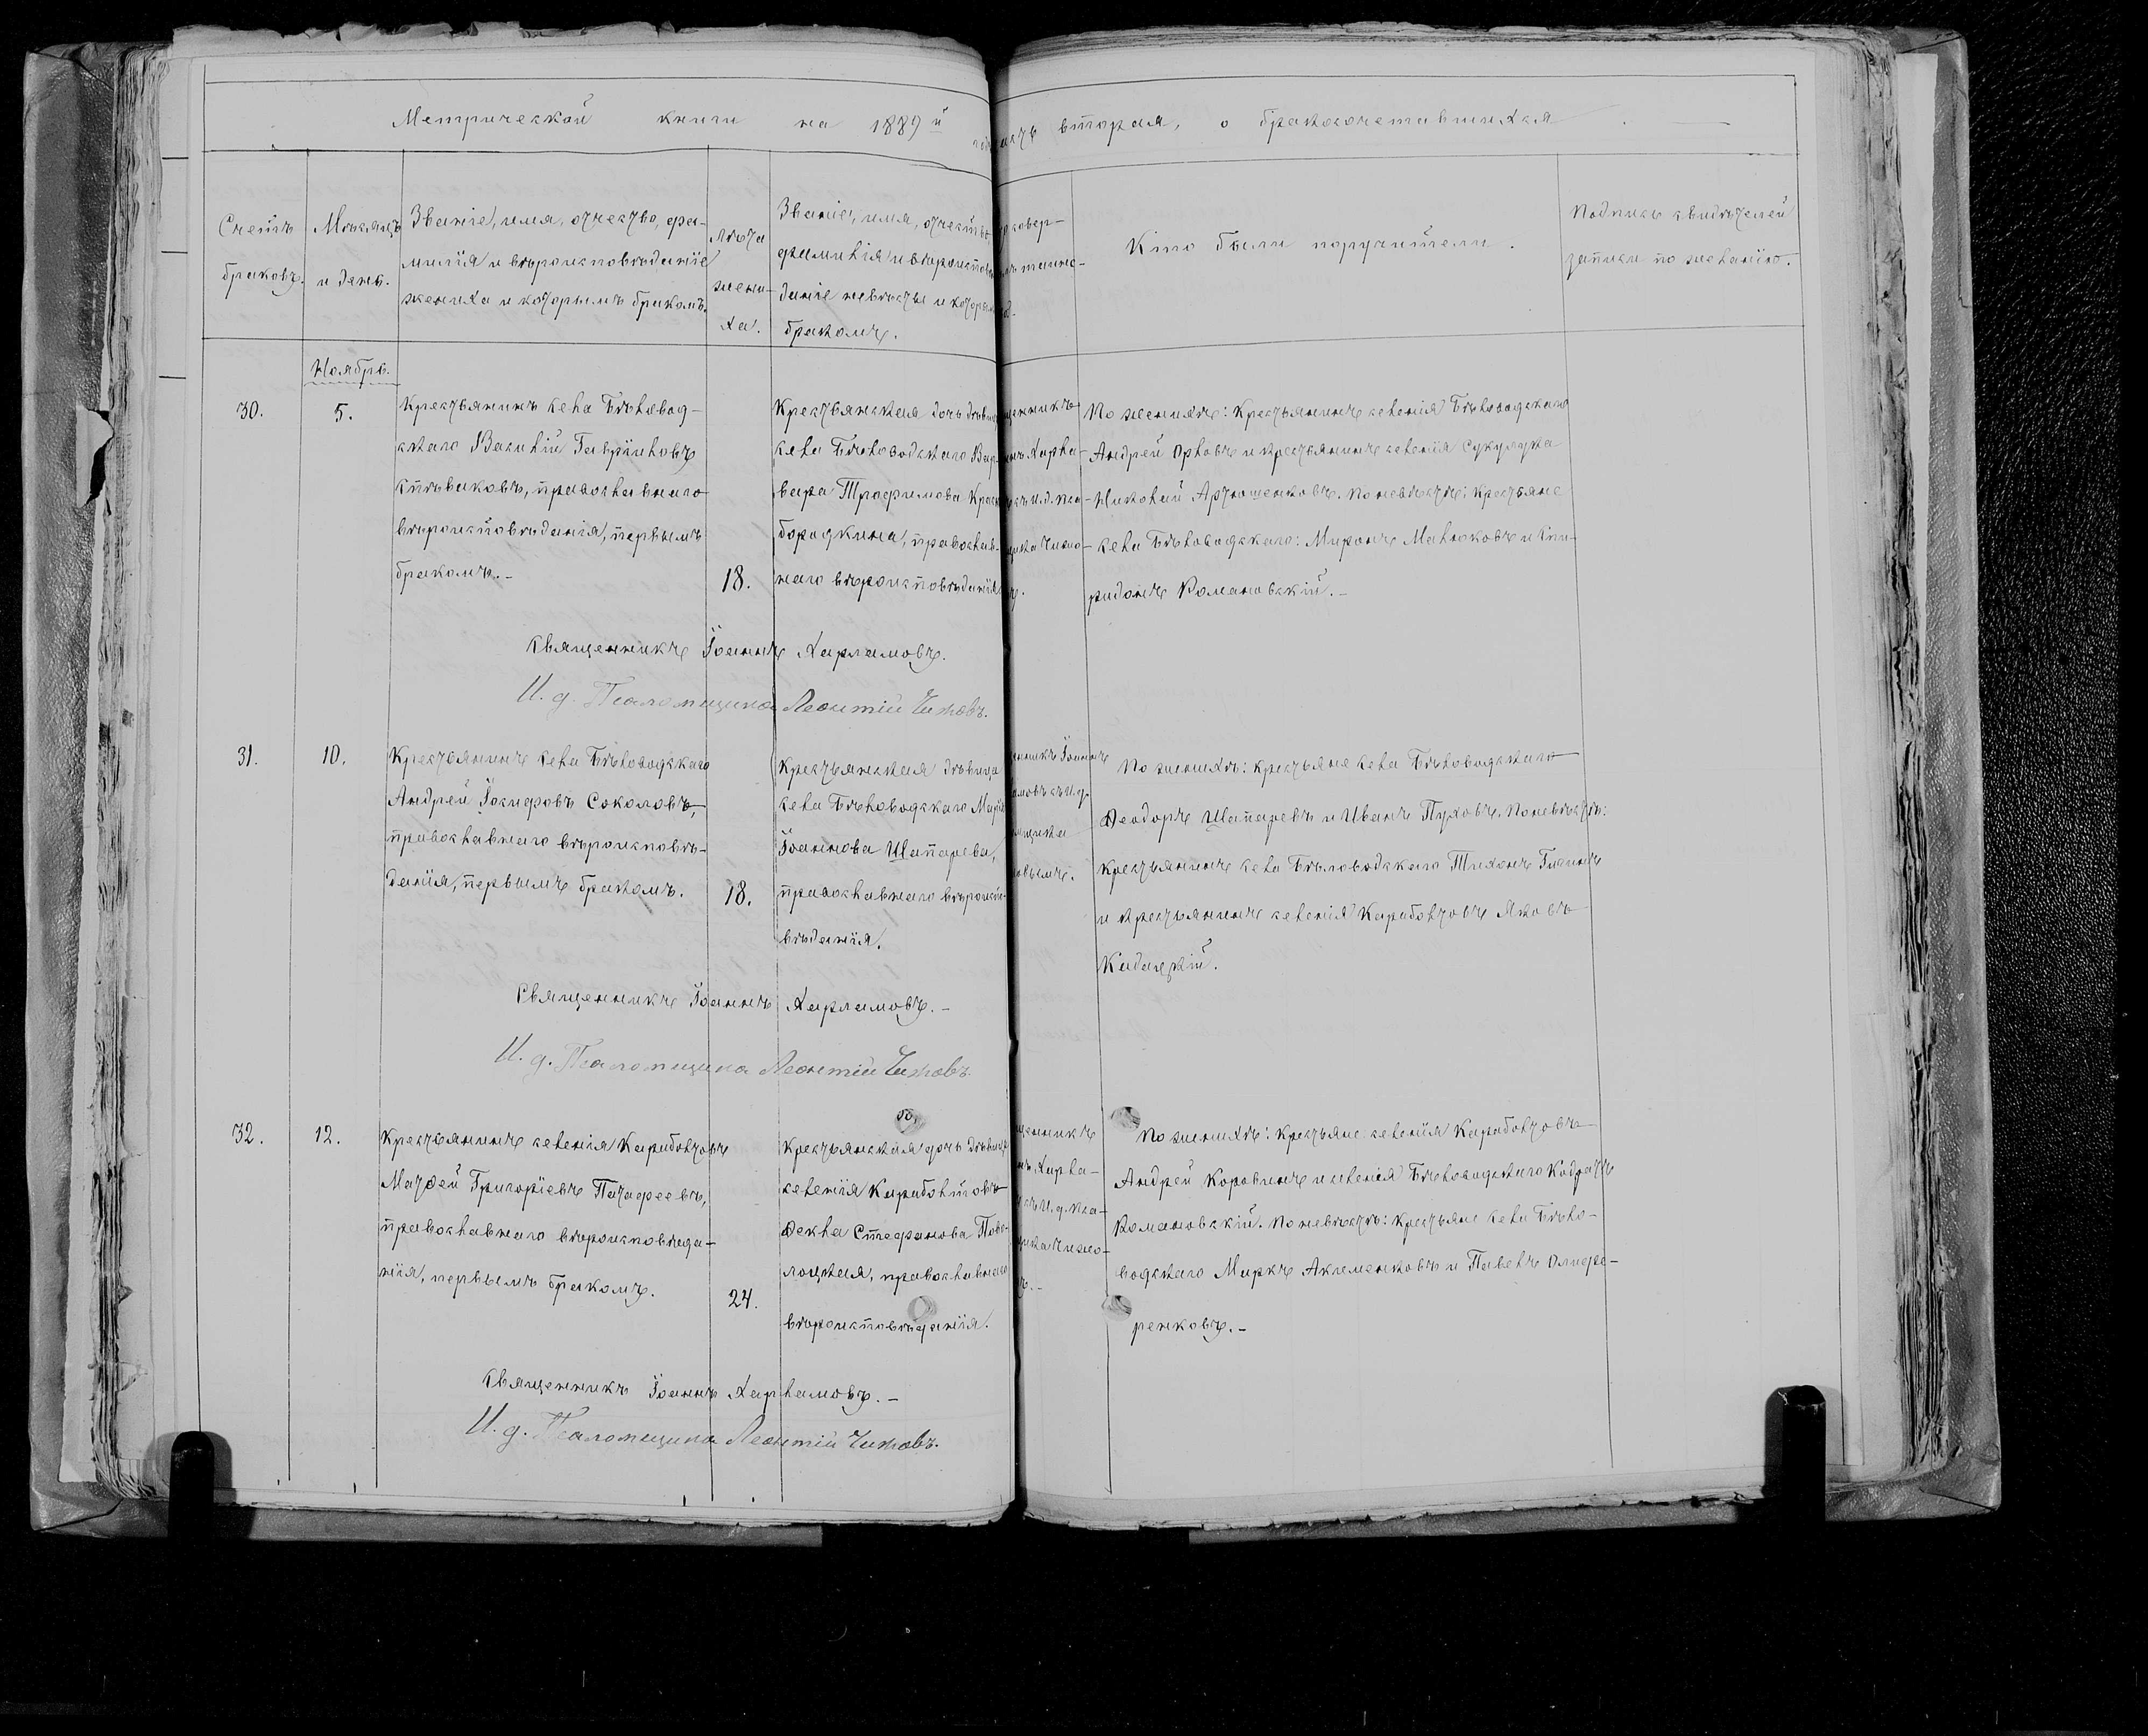 Метрической книги на 1889й
часть вторая, о бракосочетавшихся
Счетъ
браковъ.
Мѣсяцъ
и день.
Званіе, имя, отчество, фа-
милія и вѣроисповѣданіе
жениха и которымъ бракомъ.
Лѣта
жени-
ха.
Званіе, имя, отчество,
фамилія и вѣроиспов
даніе невѣсты и которым
бракомъ.
Кто были поручители.
Подпись свидѣтелей
записи по желанію.
Ноябрь.
30.
5.
Крестьянинъ села Бѣловод-
скаго Василій Гавріиловъ
Спѣваковъ, православнаго
вѣроисповѣданія, первымъ
бракомъ.-
18.
Крестьянская дочь дѣвица
села Бѣловодскаго Вар-
вара Трофимова Крас
бородкина, православ-
наго вѣроисповѣданія
По женихѣ: Крестьянинъ селенія Бѣловодскаго
Андрей Орловъ и крестьянинъ селенія Сукулука
Николай Артюшенковъ. По невѣстѣ: Крестьяне
села Бѣловодскаго: Миронъ Малюковъ и Спи-
ридонъ Романовскій.-
Священникъ Іоаннъ Харламовъ.
И. д. Псаломщика Леонтій Чижовъ.
31.
10.
Крестьянинъ села Бѣловодскаго
Андрей Іосифовъ Соколовъ,
православнаго вѣроисповѣ-
данія, первымъ бракомъ.
18.
Крестьянская дѣвица
села Бѣловодскаго Марія
Іоаннова Шапарева,
православнаго вѣроиспо-
вѣданія.
По женихѣ: крестьяне села Бѣловодскаго
Ѳеодоръ Шапаревъ и Иванъ Пуховъ. По невѣстѣ:
Крестьянинъ села Бѣловодскаго Тихонъ
и крестьянинъ селенія Карабалтовъ Яковъ
Кадацкій.
Священникъ Іоаннъ Харламовъ.-
И. д. Псаломщика Леонтій Чижовъ.
32.
12.
Крестьянинъ селенія Карабалтовъ
Матѳей Григоріевъ Патафеевъ,
православнаго вѣроисповѣда-
нія, первымъ бракомъ.
24.
Крестьянская дочь дѣвица
селенія Карабалтовъ
Ѳекла Стефанова Пово-
лоцкая, православнаго
вѣроисповѣданія.
По женихѣ: Крестьяне: селенія Карабалтовъ
Андрей Коровинъ и селенія Бѣловодскаго Кодратъ
Романовскій. По невѣстѣ: крестьяне села Бѣло-
водскаго Маркъ Акименковъ и Павелъ Олифе-
ренковъ.-
Священникъ Іоаннъ Харламовъ.-
И. д. Псаломщика Леонтій Чижовъ.